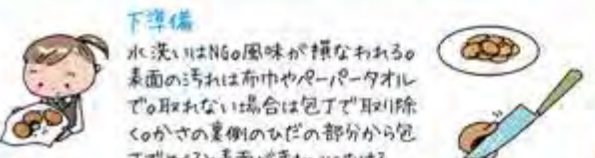 下準備
水洗いはNG。風味が損なわれる。
表面の汚れは布巾やペーパータオル
で。取れない場合は包丁で取り除
く。かさの裏側のひだの部分から包